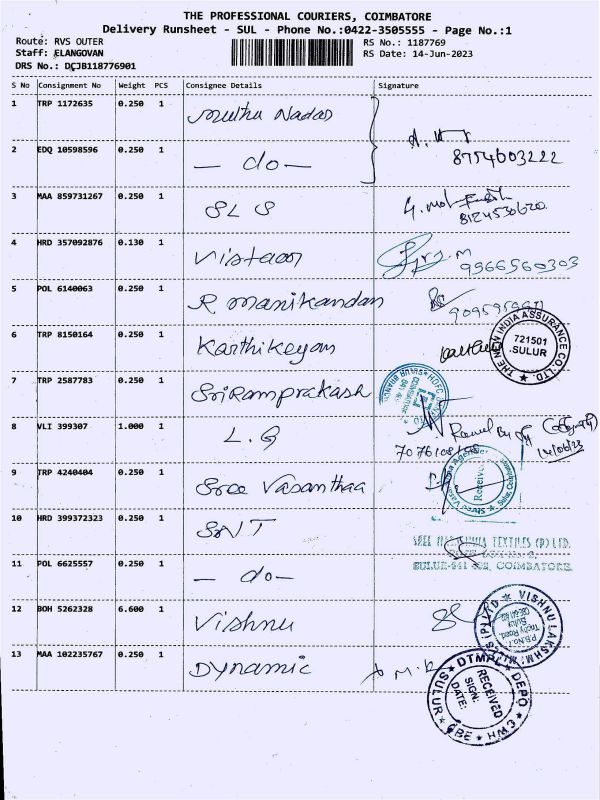 THE PROFESSIONAL COURIERS, COIMBATORE
Delivery Runsheet - SUL - Phone No.:0422-3505555 - Page No.:1
Route: RVS OUTER
RS No.: 1187769
Staff: ELANGOVAN
RS Date: 14-Jun-2023
DRS No.: DCJB118776901
S No Consignment No Weight PCS Consignee Details Signature
1 TRP 1172635 0.250 1 Muthu Nadar
2 EDQ 10598596 0.250 1 — do — 8754603222
3 MAA 859731267 0.250 1 SLS 8124530620
4 HRD 357092876 0.130 1 Vistaar 9566560303
5 POL 6140063 0.250 1 R manikandan
6 TRP 8150164 0.250 1 Karthikeyan
THE NEW INDIA ASSURANCE CO. LTD.
721501
SULUR
7 TRP 2587783 0.250 1 Sri Ramprakash
8 VLI 399307 1.000 1 L.G
14/06/23
9 TRP 4240404 0.250 1 Sree Vasanthaa
Received
10 HRD 399372323 0.250 1 SNT
TEXTILES (P) LTD.
11 POL 6625557 0.250 1 — do —
SULUR-641 402, COIMBATORE.
12 BOH 5262328 6.600 1 Vishnu
VISHNU LAKSHMI MILLS (P) LTD
P.B.No.1
Trichy Road,
Sulur
13 MAA 102235767 0.250 1 Dynamic
DTMPL DEPO
SULUR CBE HM3
RECEIVED
SIGN:
DATE: